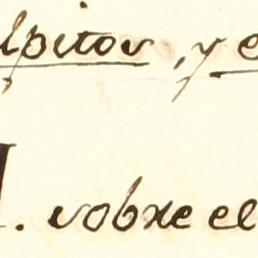 lpitos, y e
. sobre el